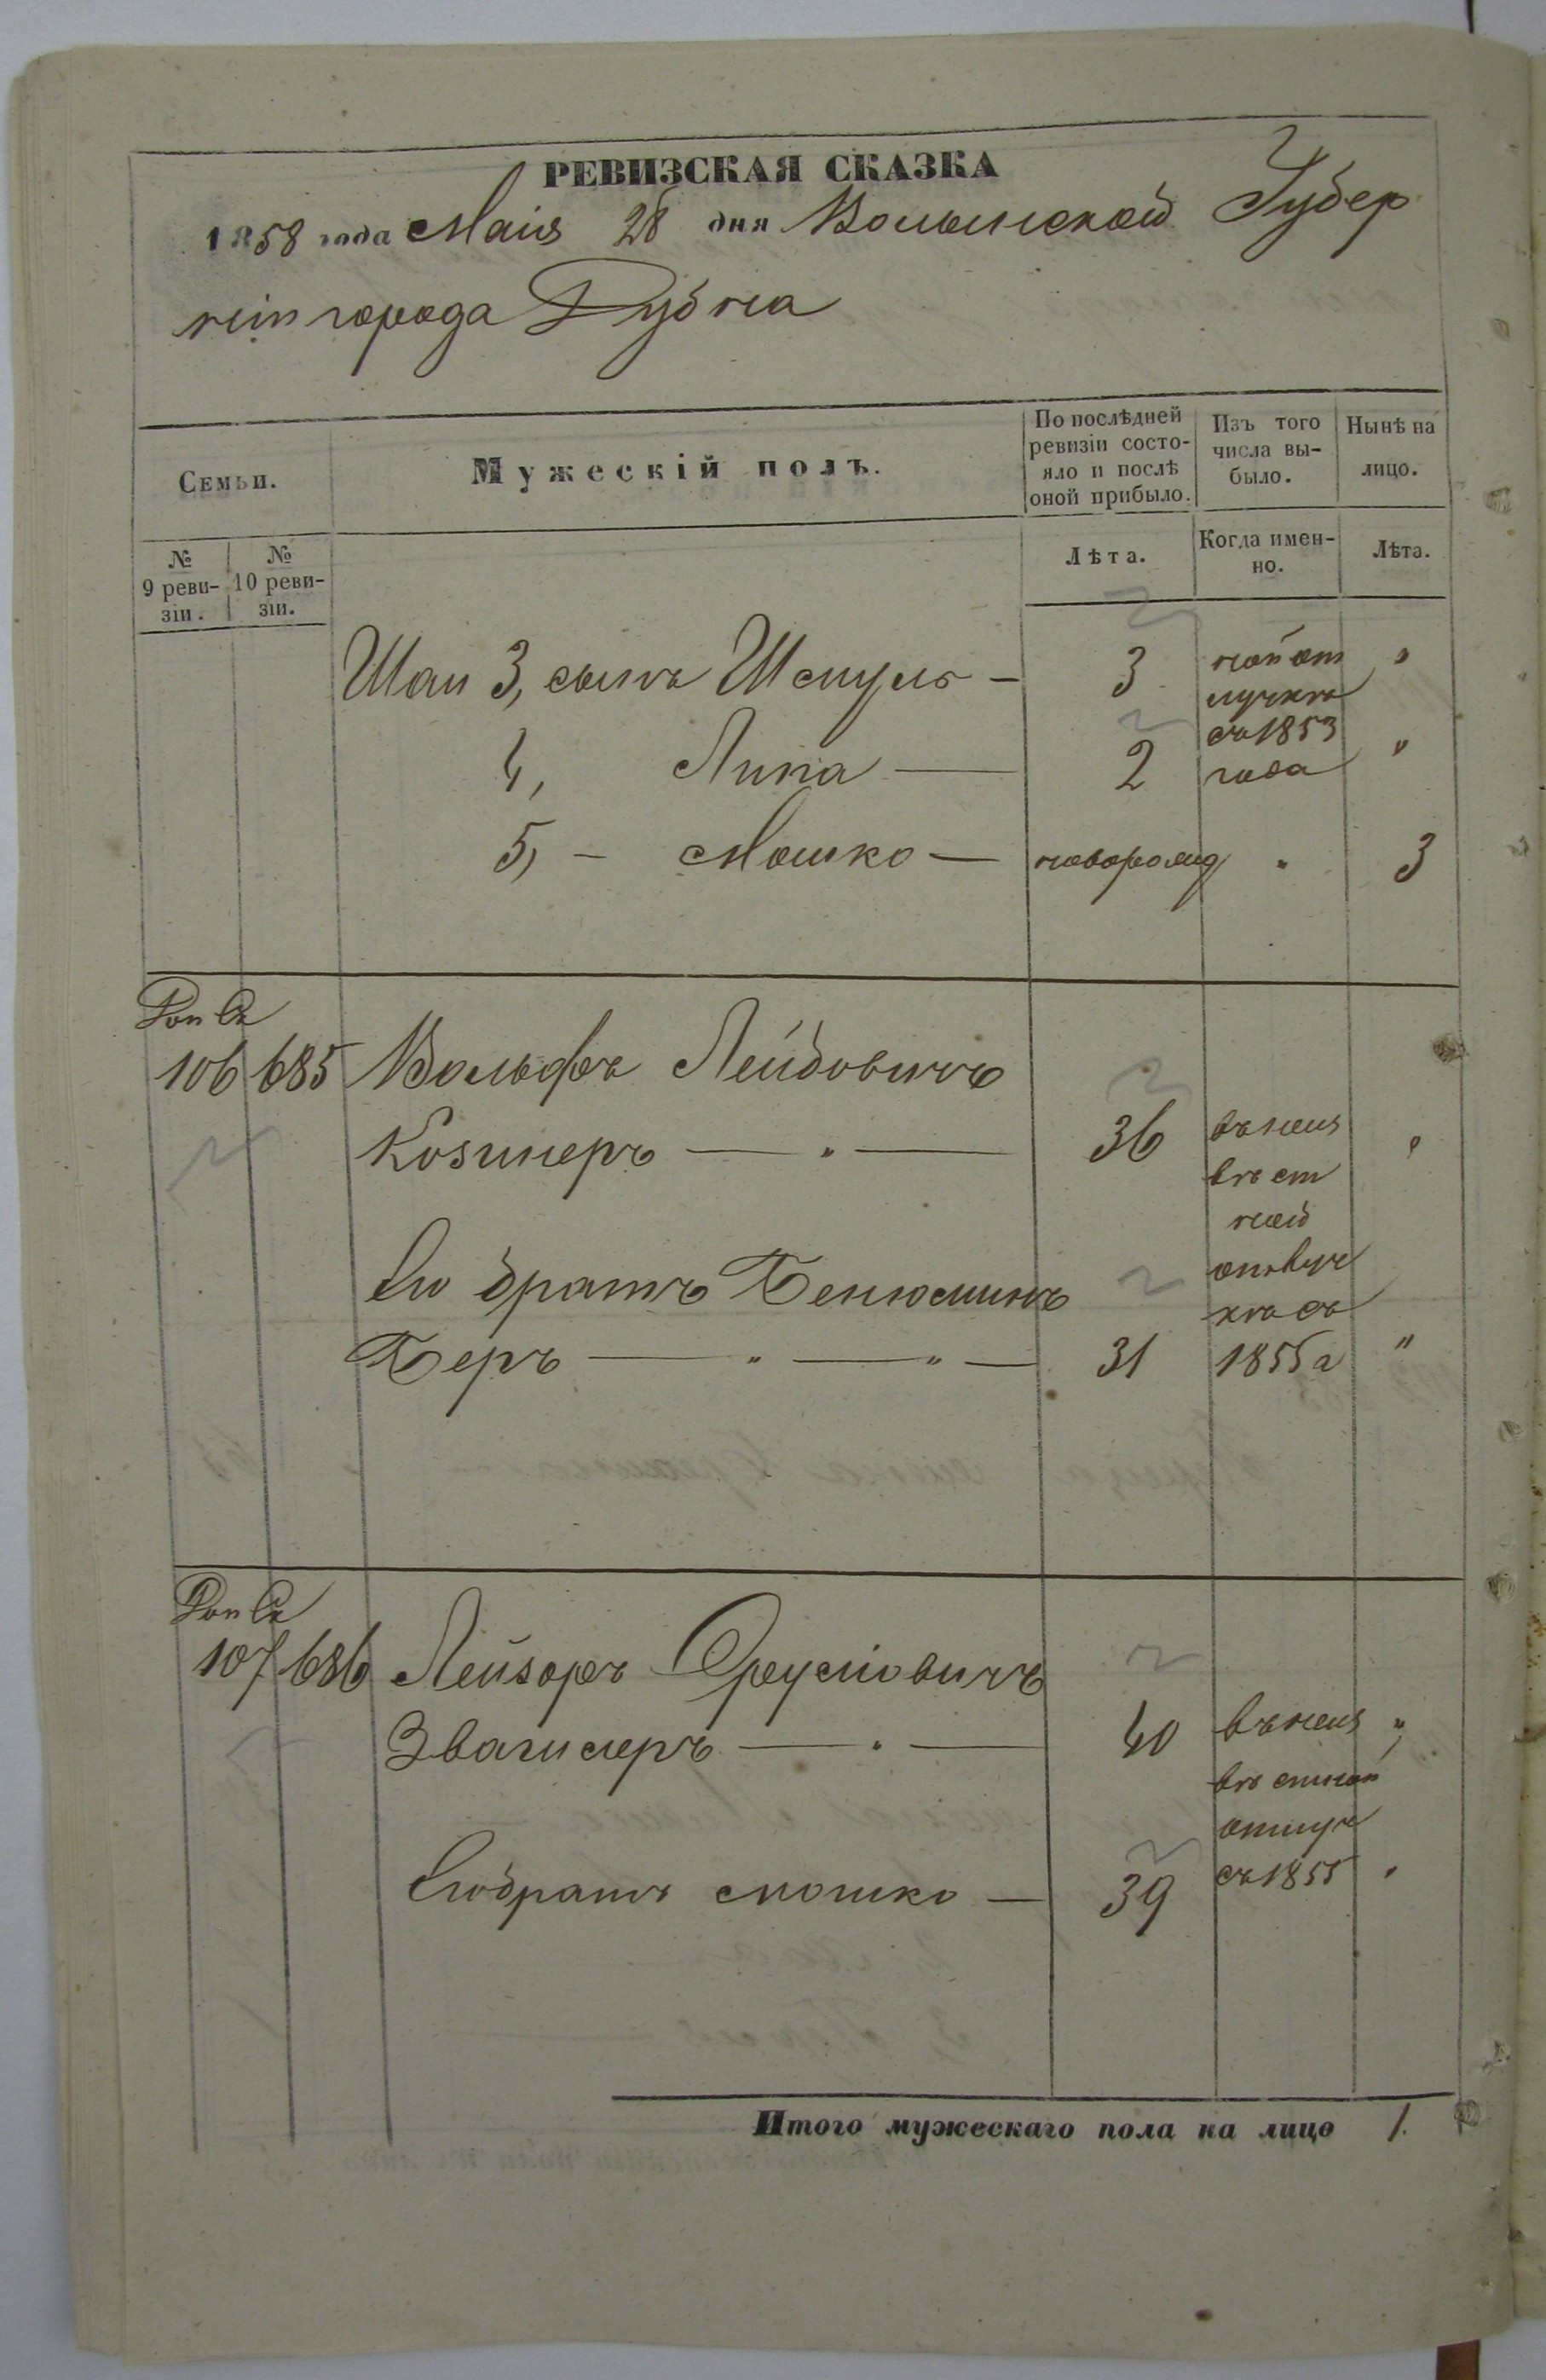 РЕВИЗСКАЯ СКАЗКА
1858 года Маія 28 дня Волынской Губер
ніи города Дубна
Семьи.
Мужескій полъ.
По послѣдней ревизіи состо-
яло и послѣ
оной прибыло.
Изъ того
числа вы-
было.
Нынѣ на
лицо.
№
9 реви-
зіи.
№
10 реви-
зіи.
Лѣта.
Когда имен-
но.
Лѣта.
3, сынъ Шмуль — 3 "
4, Липа — 2 "
съ 1853
года
5, — Мошко — новорожд " 3
106 685 Вольфъ Лейбовичъ
Козинеръ — " — 36 въ неиз "
вѣст
ной
отлуч
кѣ съ
Его братъ Бенюминъ
Беръ — " — " — 31 1855 а "
107 686 Лейзоръ
— " — 40 въ неиз "
вѣстной
отлуч
Его братъ Мошко — 39 съ 1855 "
Итого мужескаго пола на лицо 1.